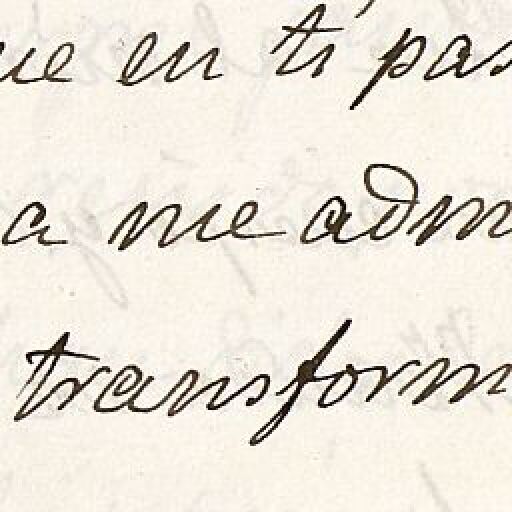 ue en ti pas
a me adm
transform